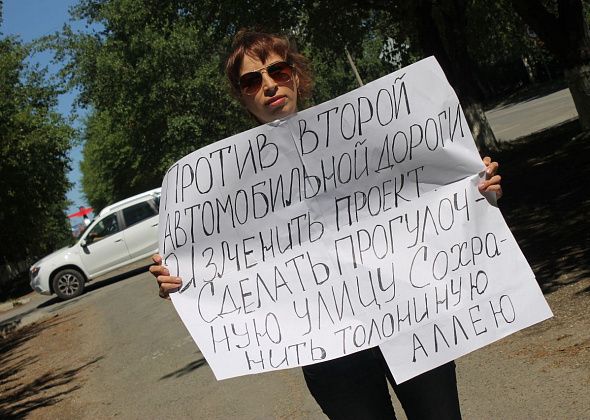 ПРОТИВ ВТОРОЙ
АВТОМОБИЛЬНОЙ ДОРОГИ
ИЗМЕНИТЬ ПРОЕКТ
СДЕЛАТЬ ПРОГУЛОЧ-
НУЮ УЛИЦУ СОХРА-
НИТЬ ТОПОЛИНУЮ
АЛЛЕЮ